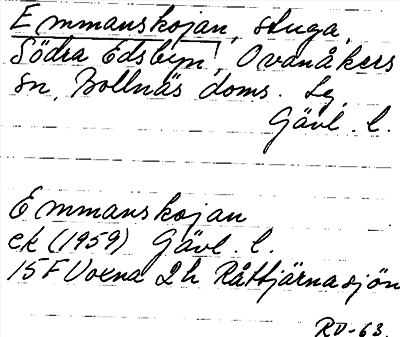 Emmanskojan, stuga,
Södra Edsbyn, Ovanåkers
sn, Bollnäs doms. Lg,
Gävl. l.
Emmanskojan
ek (1959) Gävl. l.
15F Voxna 2h Råttjärnasjön
RD-63.